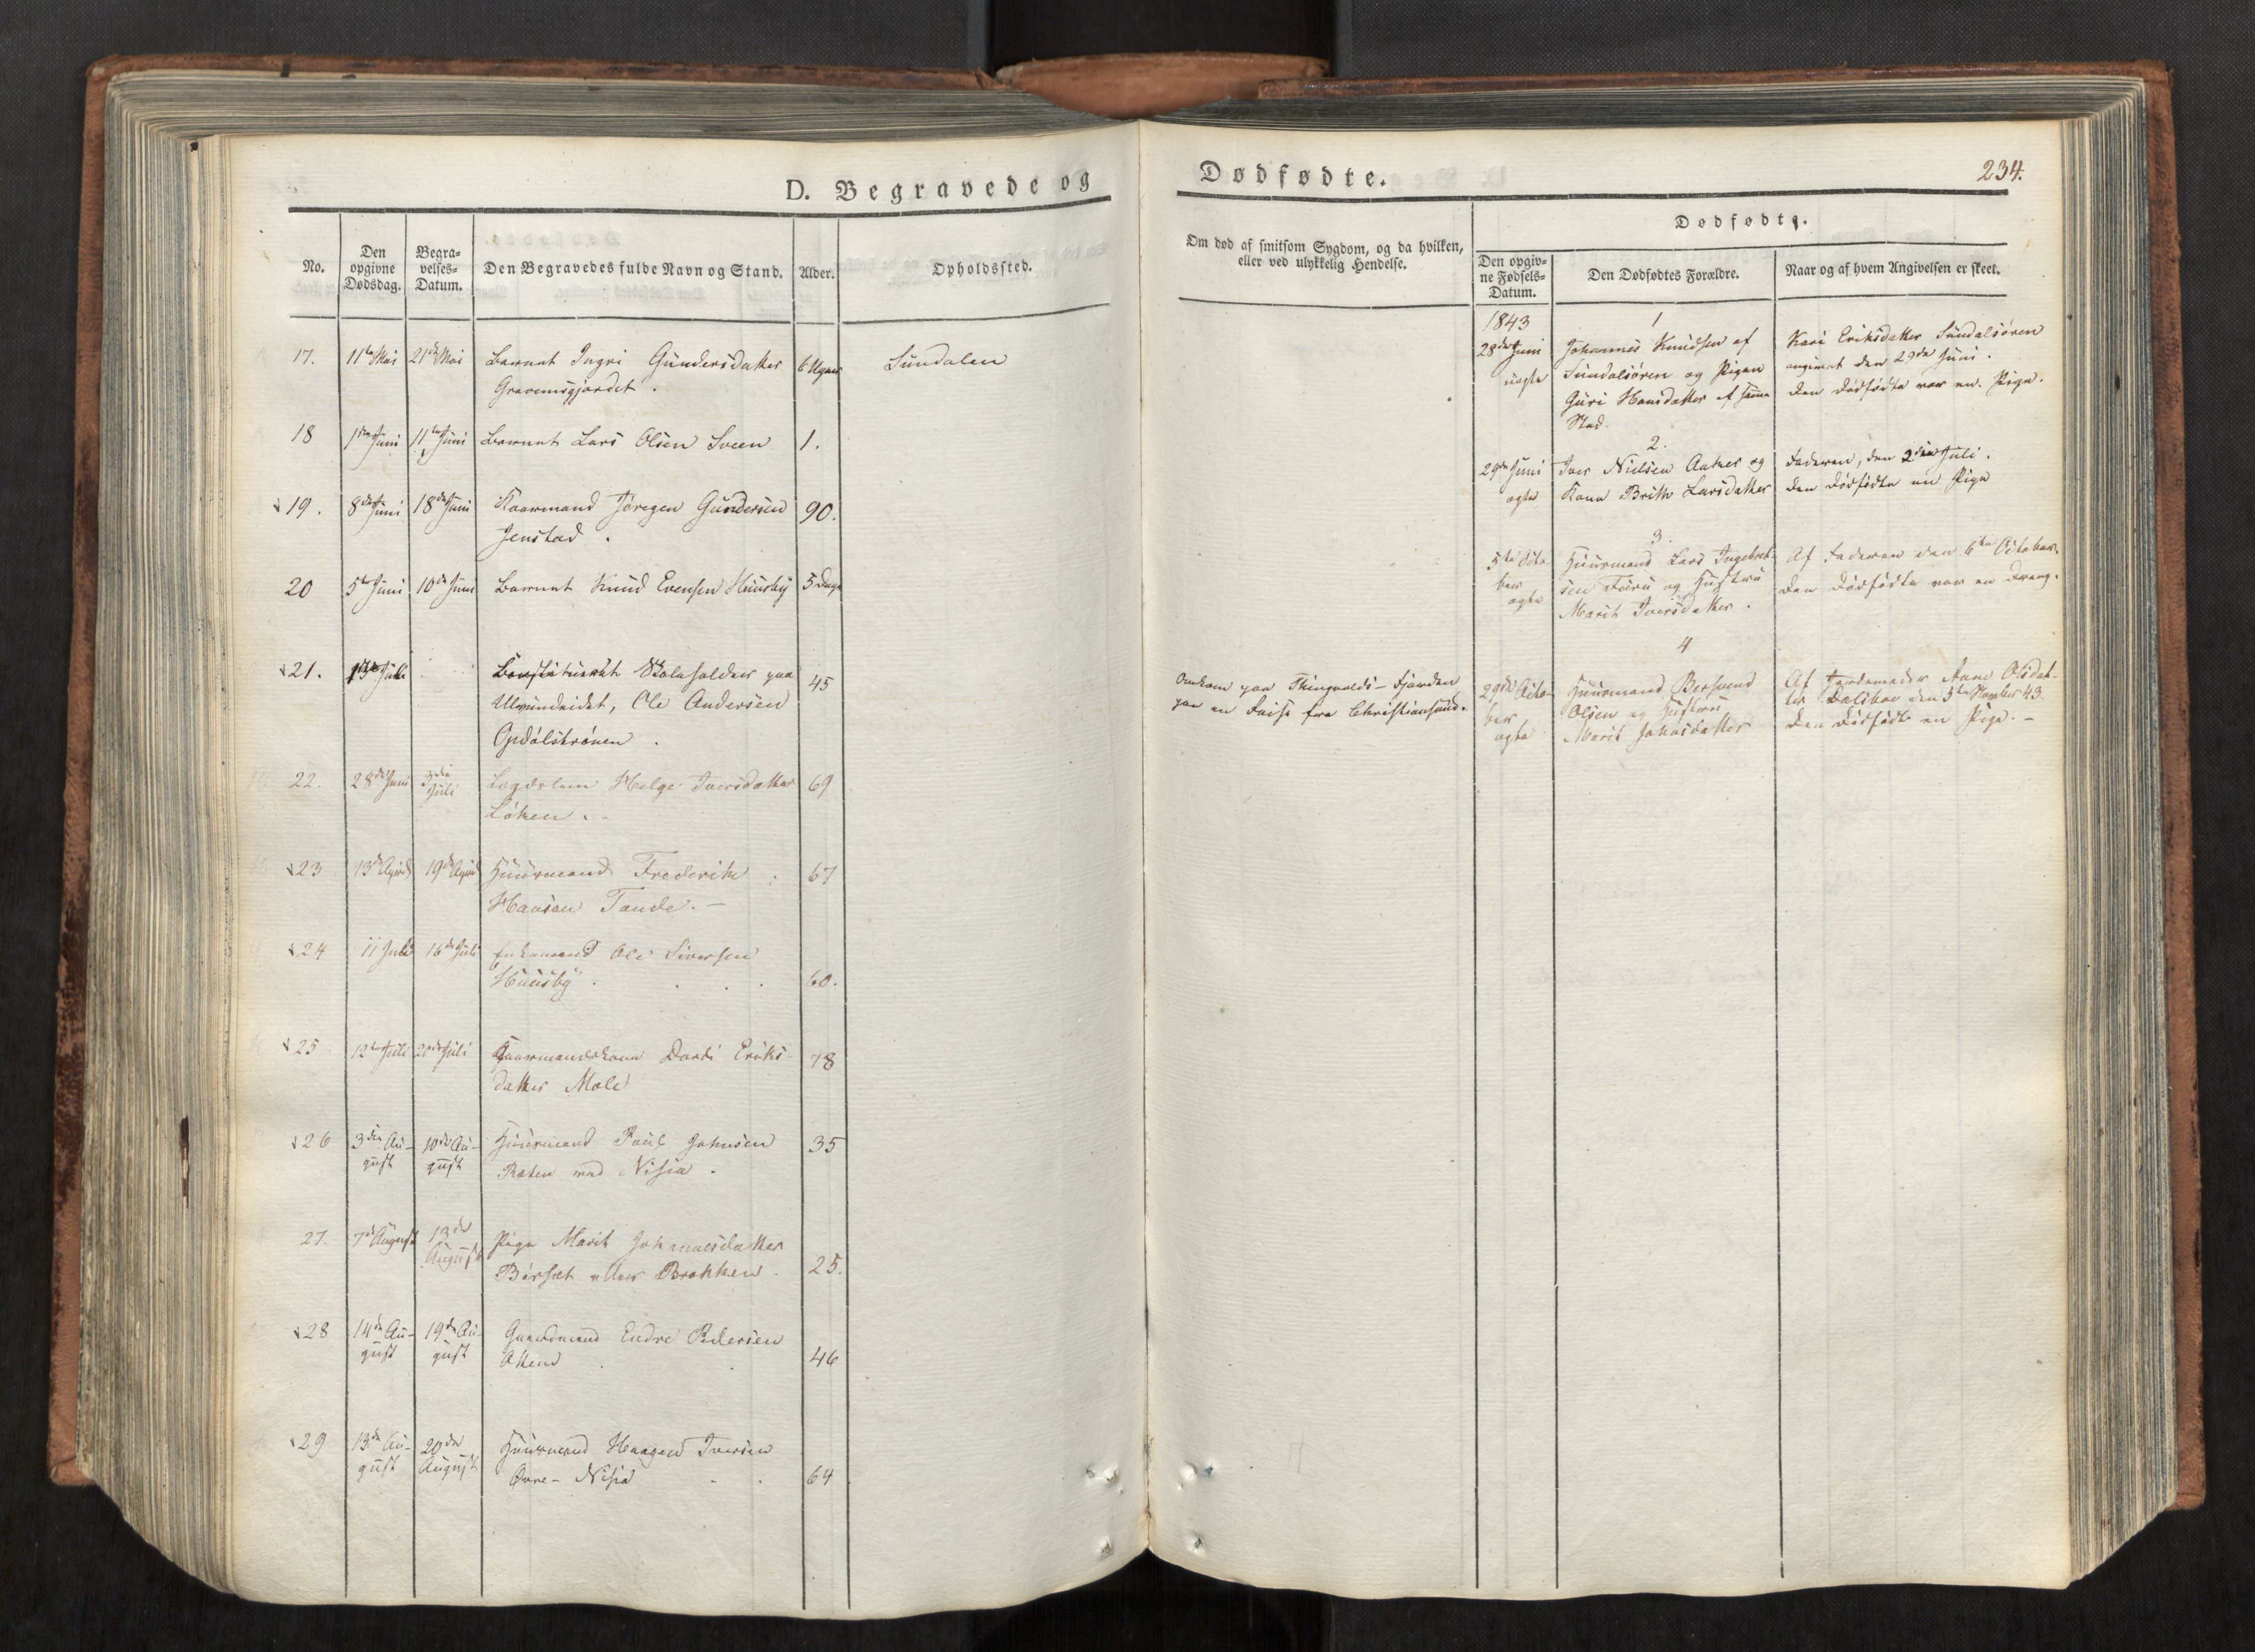 D. Begravede og
No.
Den opgivne Dødsdag.
Begra-velses-Datum.
Den Begravedes fulde Navn og Stand.
Alder.
Opholdssted.
17. 11te Mai 21de Mai Barnet Ingri Gundersdatter 6 Uger Sundalen
18 1ste Juni 11te Juni Barnet Lars Olsen Sveen 1.
19. 8de Juni 18de Juni Kaarmand Jørgen Gundersen 90.
Jenstad.
20 5te Juni 10de Juni Barnet Knud Evensen Huusby 5 Dage
21. Juli Skoleholder paa 45
Ulvundeidet, Ole Andersen
Opdølstrønen.
22. 28de Juni 3die Juli Lægdslem Helge Iversdatter 69
Løken.
23 13de April 19de April Huusmand Frederik 67
Hansen Tande.
24 11 Juli 16de Juli Enkemand Ole Siversen
Huusby. 60.
25 12te Juli 20de Juli Kaarmandskone Dordi Eriks- 78
datter Mæle
26 3die Au- 10de Au- Huusmand Poul Johnsen 35
gust gust Røten ved Nisja.
27. 7de August 13de Pige Marit Johannesdatter
August Børset eller Brekken. 25.
28 14de Au- 19de Au- Gaardmand Endre Pedersen
gust gust 46
29 13de Au- 20de Huusmand Haagen Iversen
gust August Øvre-Nisja 64
Dødfødte.
234.
Om død af smitsom Sygdom, og da hvilken,
eller ved ulykkelig Hendelse.
Dødfødte.
Den opgiv-
ne Fødsels-
Datum.
Den Dødfødtes Forældre.
Naar og af hvem Angivelsen er skeet.
1843 1
28de Juni Johannes Knudsen af Kari Eriksdatter Sundalsøren
uægte Sundalsøren og Pigen angivet den 29de Juni.
Guri Hansdatter af samme Den dødfødte var en Pige.
Sted.
2.
29de Juni Iver Nielsen og Faderen, den 2den Juli.
ægte Kone Brith Larsdatter Den dødfødte en Pige
3.
5te Octo- Huusmand Lars Ingebret- Af Faderen den 6te October.
ber sen Furu og Hustru Den dødfødte var en Dreng.
ægte Marit Iversdatter.
4
Omkom paa Thingvolds-Fjorden
paa en Reise fra Christiansund.
29de Octo- Huusmand Bersvend Af Jordemoder Olsdat-
ber Olsen og Hustru ter den 5te November 43.
ægte Marit Johnsdatter Den dødfødte en Pige.